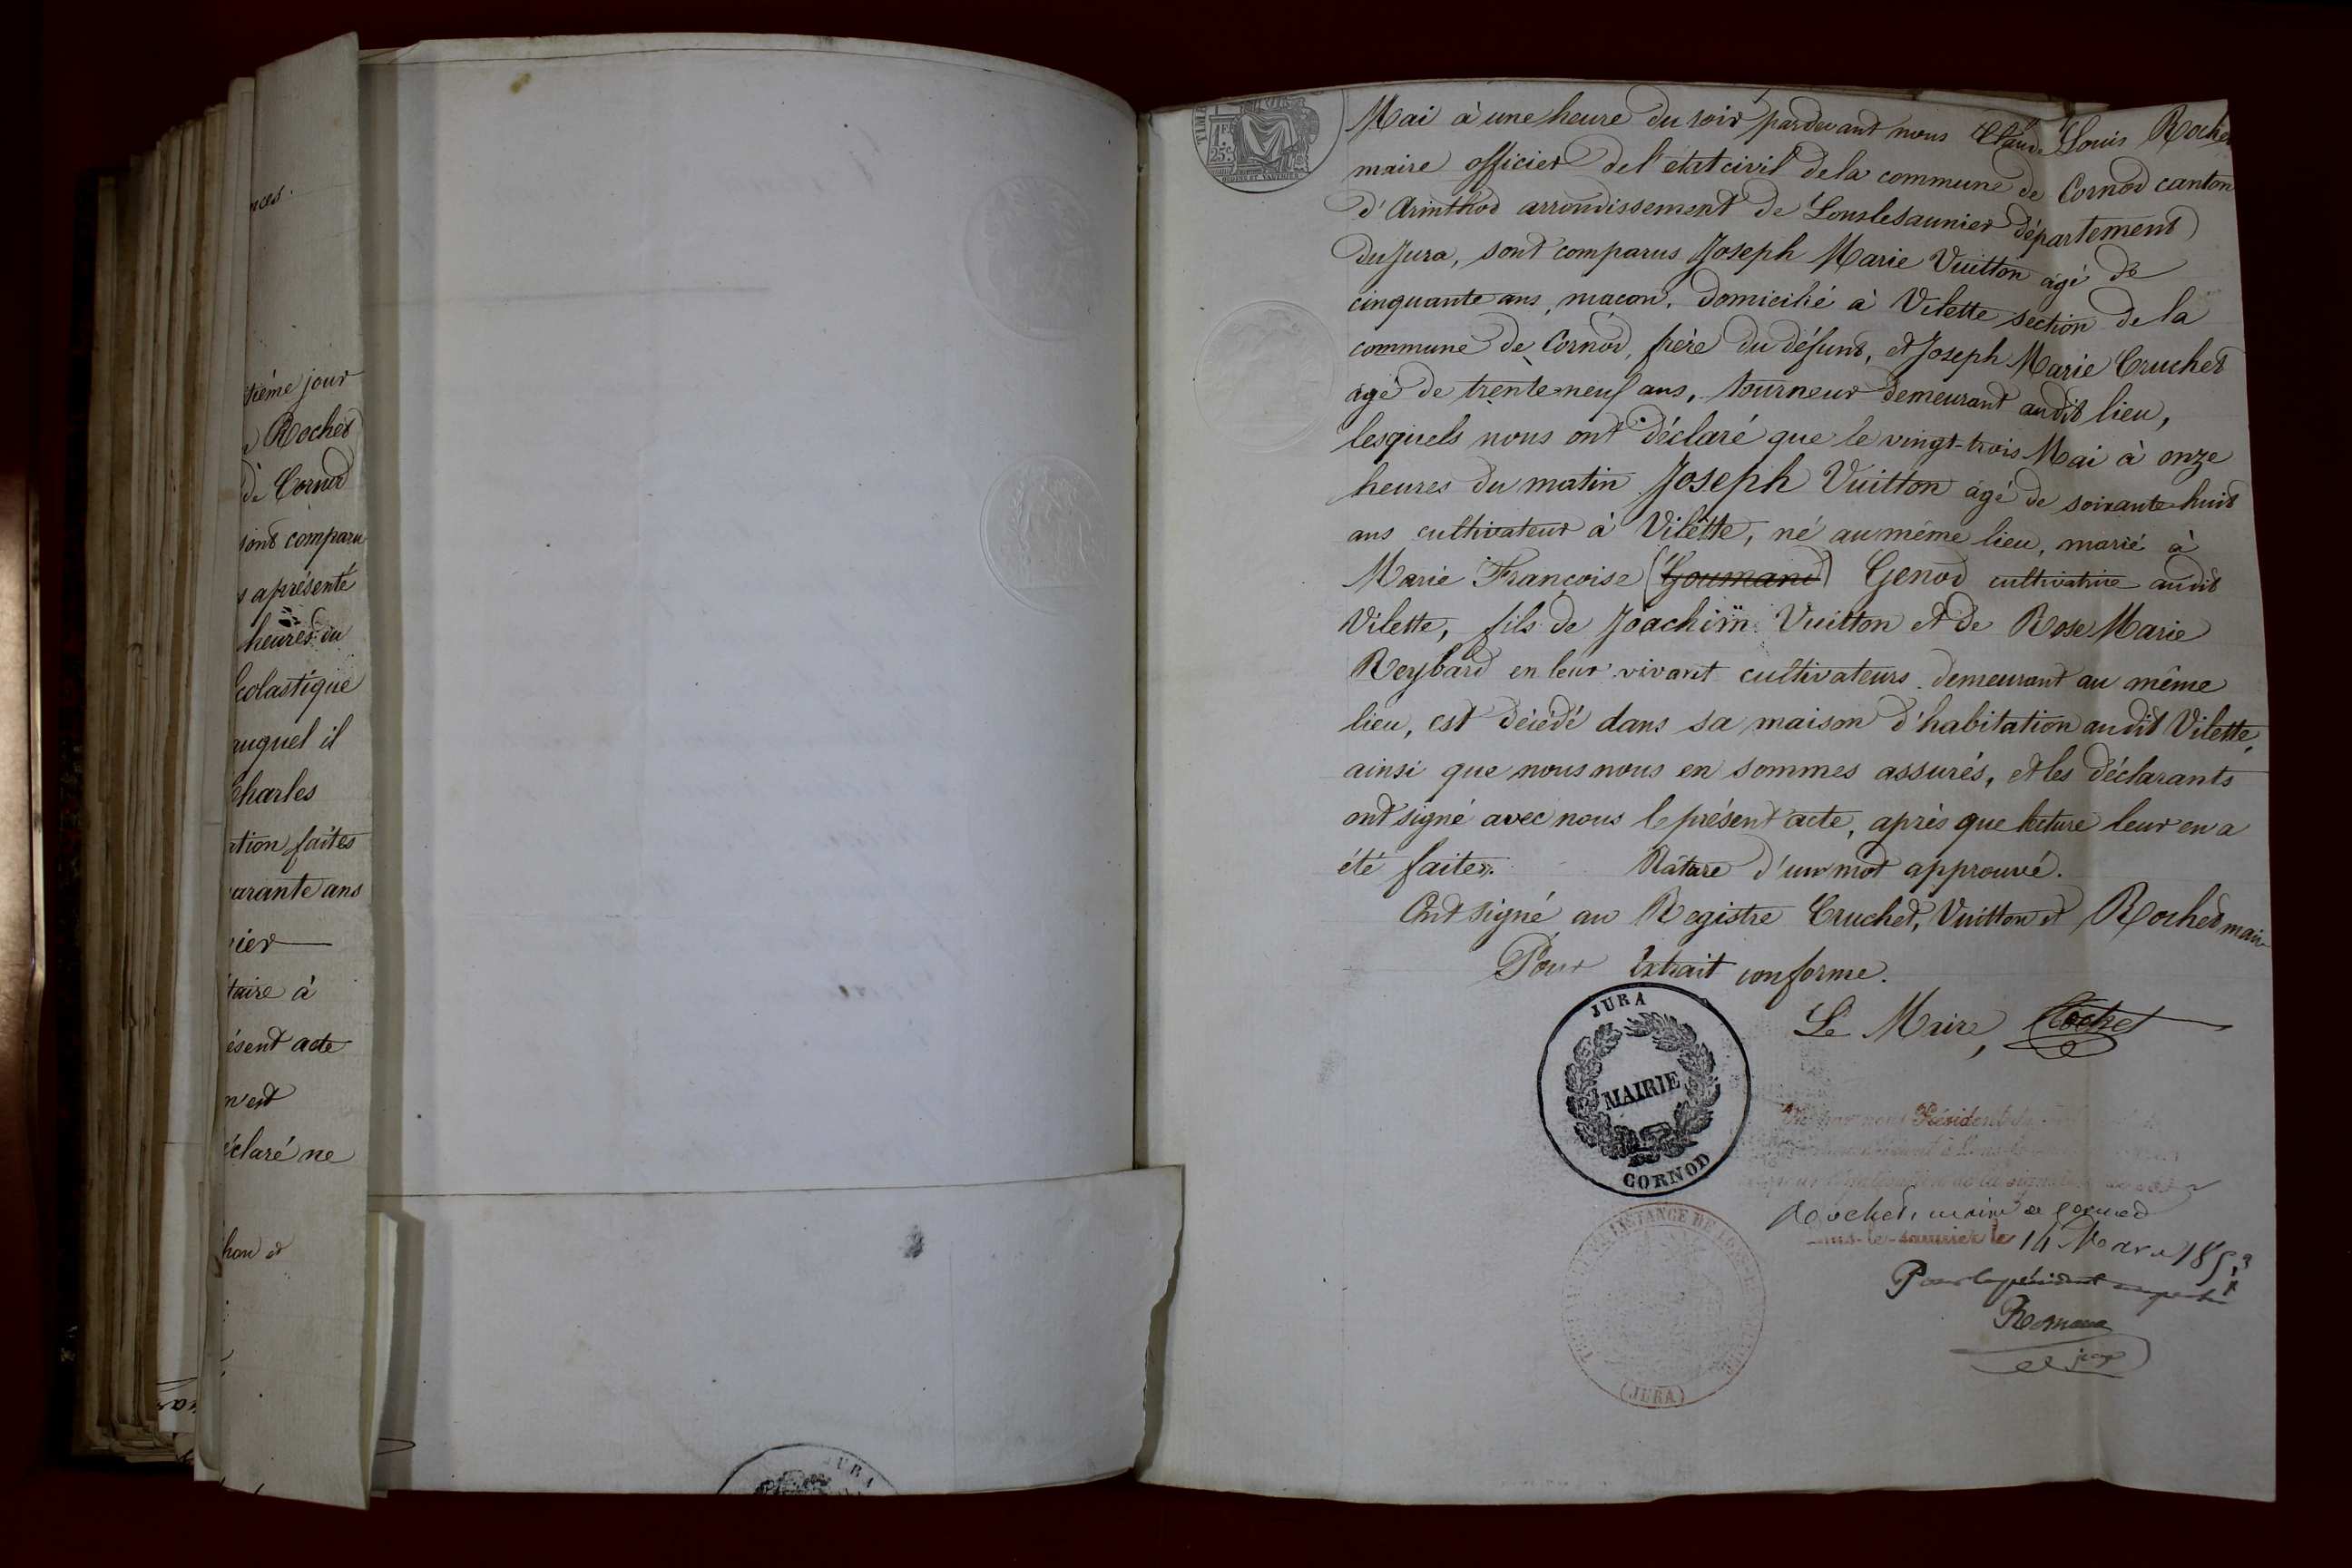 nces.
tième jour
Rochet
de Cornod
sont comparu
s a présenté
heures du
Scolastique
auquel il
Charles
ation faites
uarante ans
cier
taire à
ésent acte
n est
éclaré ne
hon et
JURA
TIMB
1 F.
25 c.
Mai à une heure du soir pardevant nous Claude Louis Rochet
maire officier de l'état civil de la commune de Cornod canton
d'Arinthod arrondissement de Lonslesaunier département
du Jura, sont comparus Joseph Marie Vuitton agé de
cinquante ans, macon, domicilié à Vilette section de la
commune de Cornod, frère du défunt, et Joseph Marie Cruchet
agé de trente-neuf ans, tourneur demeurant audit lieu,
lesquels nous ont déclaré que le vingt-trois Mai à onze
heures du matin Joseph Vuitton agé de soixante huit
ans cultivateur à Vilette, né au même lieu, marié à
Marie Françoise (Goumand) Genod cultivatrice audit
Vilette, fils de Joachim Vuitton et de Rose Marie
Reybard en leur vivant cultivateurs demeurant au même
lieu, est décédé dans sa maison d'habitation audit Vilette,
ainsi que nous nous en sommes assurés, et les déclarants
ont signé avec nous le présent acte, après que lecture leur en a
été faite. Rature d'un mot approuvé.
Ont signé au Registre Cruchet, Vuitton et Rochet maire
Pour Extrait conforme.
Le Maire, Rochet
JURA
MAIRIE
CORNOD
Vu par nous Président
la signature
Rochet, maire de Cornod
Lons-le-saunier le 14 Mars 1853
Pour le président empêché
INSTANCE DE LONS
(JURA)